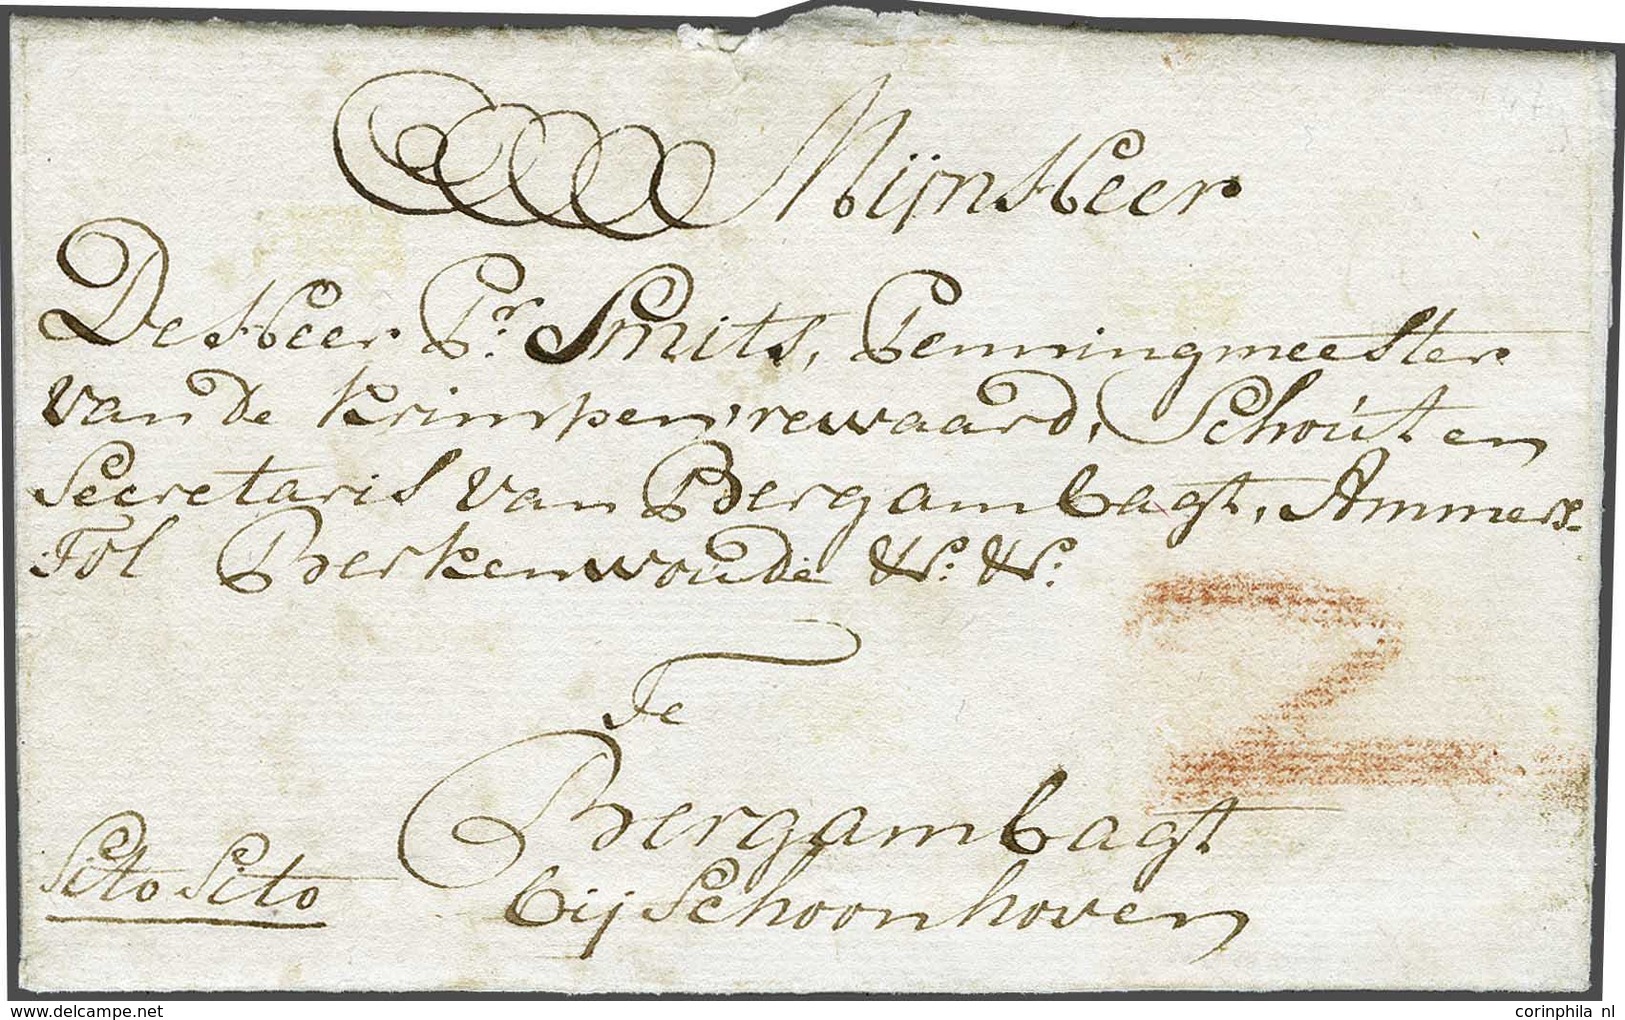 Mijn Heer
De Heer Pr. Smits, Penningmeester
van de Krimpenrewaard, Schout en
Secretaris van Bergambagt, Ammers
Tol Berkenwoude &c. &c.
2
Te
Bergambagt
bij Schoonhoven
Sito Sito
delcampe.net
corinphila nl